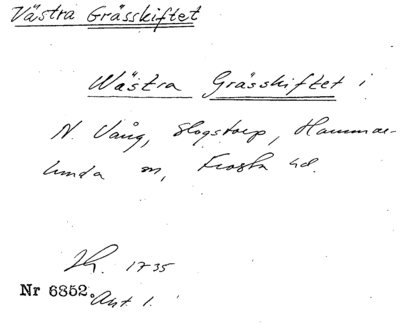 Västra Grässkiftet
Wästra Grässkiftet i
N. Vång, Slogstorp, Hammar-
lunda sn, Frosta hd.
Lh. 1735
Nr 6352. Akt 1.